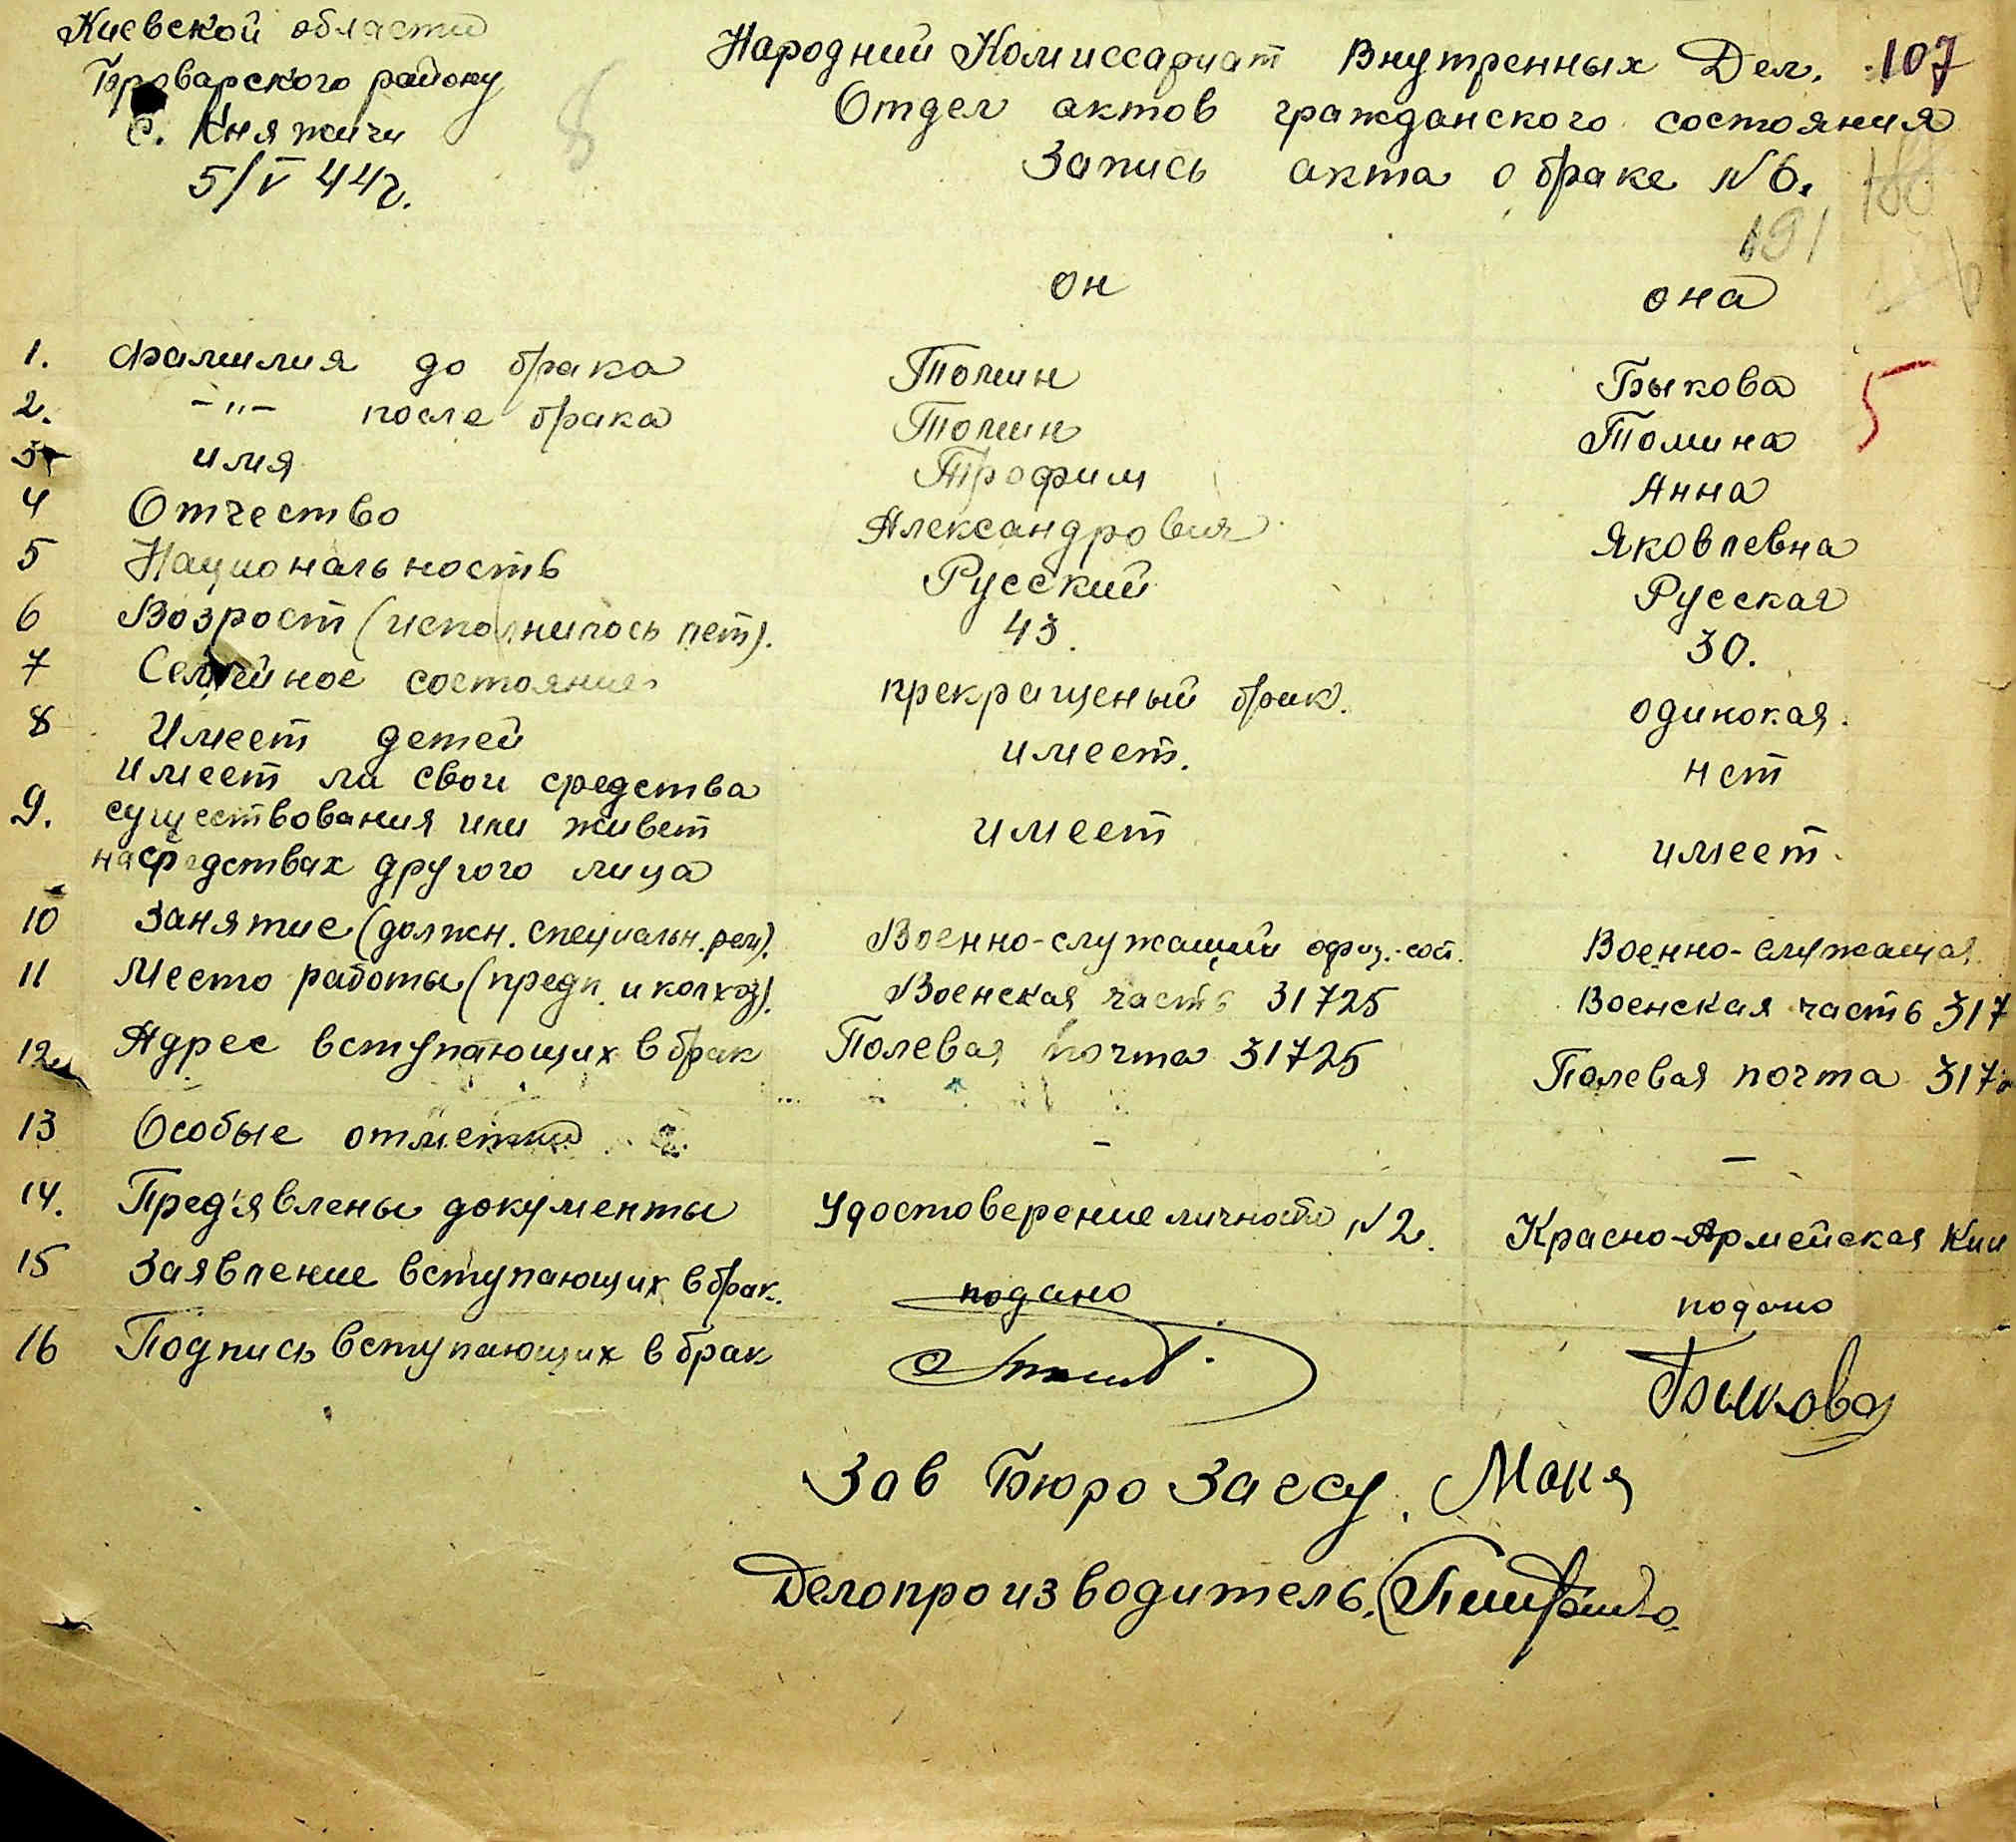 Киевской области
Броварского району
с. Княжичи
5/V 44г.
Народний Комиссариат Внутренных Дел. 107
Отдел актов гражданского состояния
Запись акта о браке №6.
191
он она
1. Фамилия до брака Томин Быкова 5
2. -"- после брака Томин Томина
3 имя Трофим Анна
4 Отчество Александрович Яковлевна
5 Национальность Русский Русская
6 Возрост (исполнилось лет). 43. 30.
7 Семейное состояние прекращеный брак. одинокая.
8 Имеет детей имеет. нет
имеет ли свои средства
9. существования или живет имеет имеет.
на средствах другого лица
10 Занятие (должн. специальн. рем). Военно-служащий офиц.-сост. Военно-служащая.
11 Место работы (предп. и колхоз). Военская часть 31725 Военская часть 317
12. Адрес вступающих в брак Полевая почта 31725 Полевая почта 317
13 Особые отметки - -
14. Пред'явлены документы Удостоверение личности №2. Красно-Армейская Кни
15 Заявление вступающих в брак. подано подано
16 Подпись вступающих в брак Быкова
Зав Бюро Загсу.
Делопроизводитель.